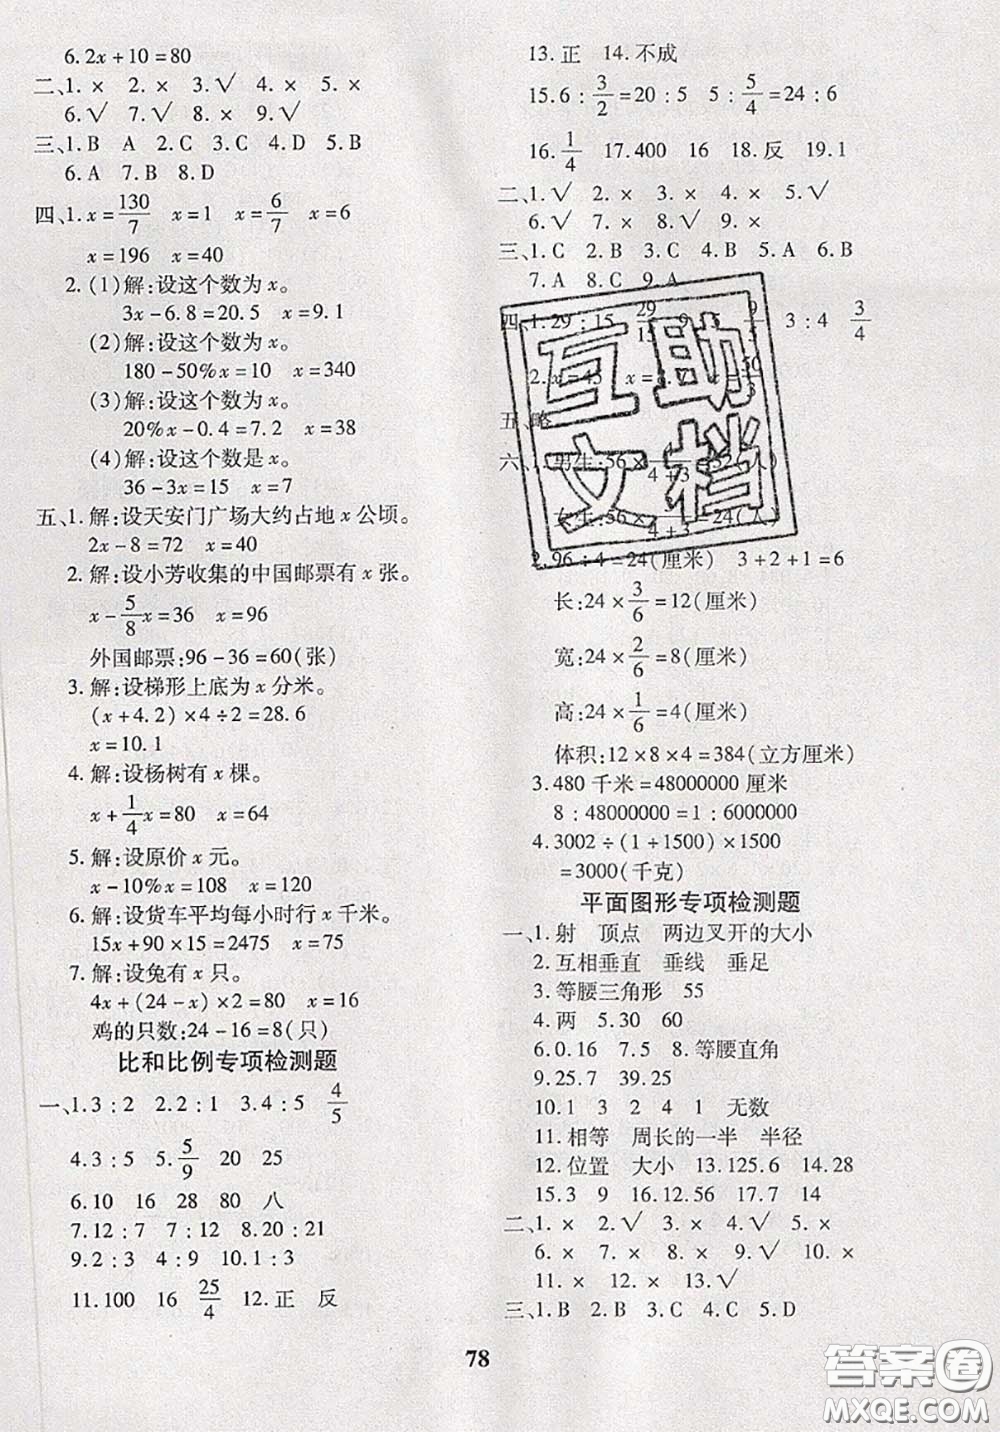 6. 2x+10=80
二、1. × 2. × 3. √ 4. × 5. ×
6. √ 7. √ 8. × 9. √
三、1. B A 2. C 3. C 4. D 5. B
6. A 7. B 8. D
四、1. x=130/7 x=1 x=6/7 x=6
x=196 x=40
2. (1)解:设这个数为 x。
3x-6.8=20.5 x=9.1
(2)解:设这个数为 x。
180-50%x=10 x=340
(3)解:设这个数为 x。
20%x-0.4=7.2 x=38
(4)解:设这个数是 x。
36-3x=15 x=7
五、1. 解:设天安门广场大约占地 x 公顷。
2x-8=72 x=40
2. 解:设小芳收集的中国邮票有 x 张。
x-5/8x=36 x=96
外国邮票:96-36=60(张)
3. 解:设梯形上底为 x 分米。
(x+4.2)×4÷2=28.6
x=10.1
4. 解:设杨树有 x 棵。
x+1/4x=80 x=64
5. 解:设原价 x 元。
x-10%x=108 x=120
6. 解:设货车平均每小时行 x 千米。
15x+90×15=2475 x=75
7. 解:设兔有 x 只。
4x+(24-x)×2=80 x=16
鸡的只数:24-16=8(只)
比和比例专项检测题
一、1. 3:2 2. 2:1 3. 4:5 4/5
4. 3:5 5. 5/9 20 25
6. 10 16 28 80 八
7. 12:7 7:12 8. 20:21
9. 2:3 4:9 10. 1:3
11. 100 16 25/4 12. 正 反
13. 正 14. 不成
15. 6:3/2=20:5 5:5/4=24:6
16. 1/4 17. 400 16 18. 反 19. 1
二、1. √ 2. × 3. × 4. × 5. √
6. √ 7. × 8. √ 9. ×
三、1. C 2. B 3. C 4. B 5. A 6. B
7. A 8. C 9. A
四、1. 29:15 29/15 9:5 9/5 3:4 3/4
2. x=45
五、略
六、1. 男生:56×4/4+3=32(人)
女生:56×3/4+3=24(人)
2. 96÷4=24(厘米) 3+2+1=6
长:24×3/6=12(厘米)
宽:24×2/6=8(厘米)
高:24×1/6=4(厘米)
体积:12×8×4=384(立方厘米)
3. 480 千米=48000000(厘米)
8:48000000=1:6000000
4. 3002÷(1+1500)×1500
=3000(千克)
平面图形专项检测题
一、1. 射 顶点 两边叉开的大小
2. 互相垂直 垂线 垂足
3. 等腰三角形 55
4. 两 5. 30 60
6. 0.16 7. 5 8. 等腰直角
9. 25.7 39.25
10. 1 3 2 4 1 无数
11. 相等 周长的一半 半径
12. 位置 大小 13. 125.6 14. 28
15. 3 9 16. 12.56 17. 7 14
二、1. × 2. √ 3. √ 4. √ 5. ×
6. × 7. × 8. × 9. √ 10. ×
11. × 12. × 13. √
三、1. B 2. B 3. C 4. C 5. D
78
互助
文档
答案圈
MXQE.COM